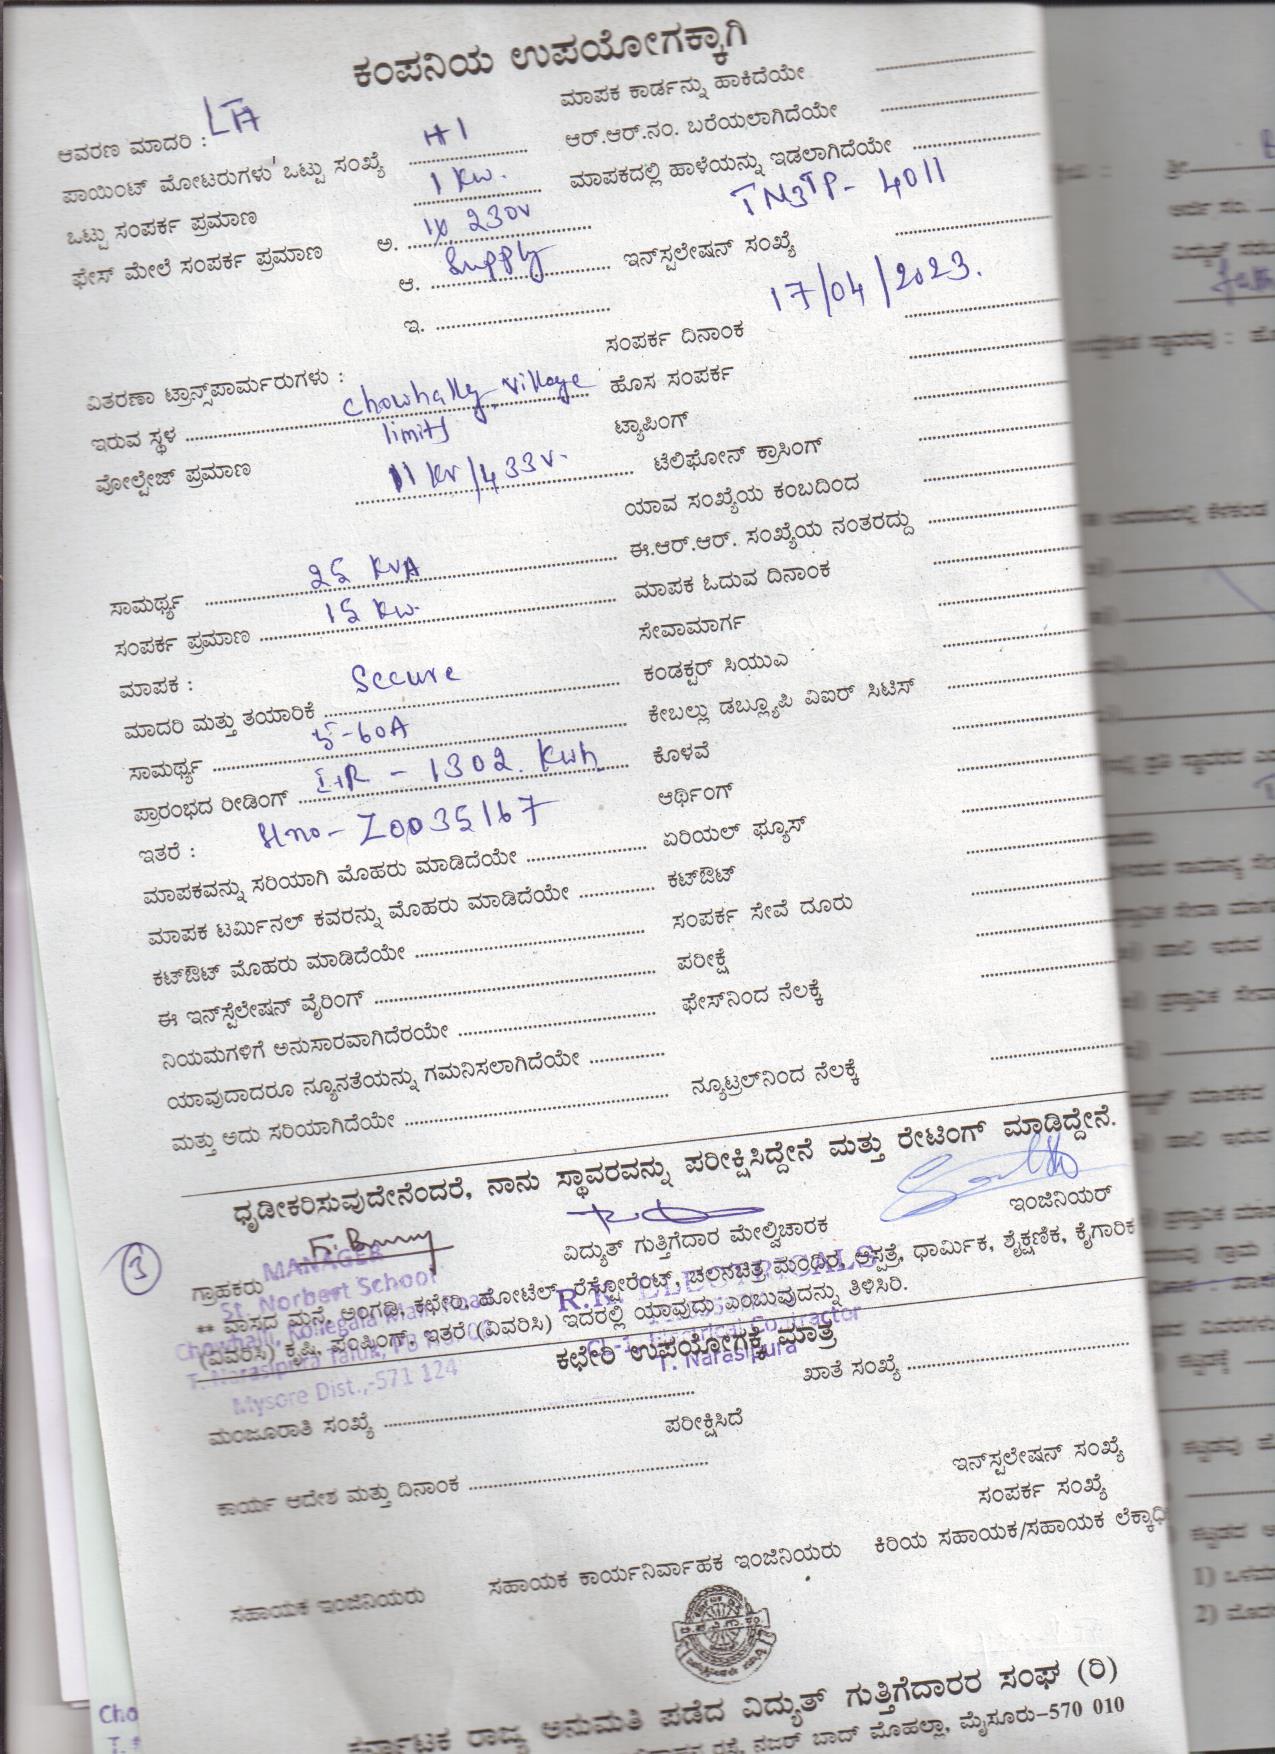 ಕಂಪನಿಯ ಉಪಯೋಗಕ್ಕಾಗಿ
ಮಾಪಕ ಕಾರ್ಡನ್ನು ಹಾಕಿದೆಯೇ
ಆವರಣ ಮಾದರಿ :
ಪಾಯಿಂಟ್ ಮೋಟರುಗಳು ಒಟ್ಟು ಸಂಖ್ಯೆ #1 ಆರ್.ಆರ್.ನಂ. ಬರೆಯಲಾಗಿದೆಯೇ
ಒಟ್ಟು ಸಂಪರ್ಕ ಪ್ರಮಾಣ 1 Kw. ಮಾಪಕದಲ್ಲಿ ಹಾಳೆಯನ್ನು ಇಡಲಾಗಿದೆಯೇ
ಫೇಸ್ ಮೇಲೆ ಸಂಪರ್ಕ ಪ್ರಮಾಣ ಅ. 230v
TP- 4011
ಆ. Supply ಇನ್‌ಸ್ಪಲೇಷನ್ ಸಂಖ್ಯೆ
ಇ.
17/04/2023.
ಸಂಪರ್ಕ ದಿನಾಂಕ
ವಿತರಣಾ ಟ್ರಾನ್ಸ್‌ಪಾರ್ಮರುಗಳು :
ಇರುವ ಸ್ಥಳ Chowhally Village limits ಹೊಸ ಸಂಪರ್ಕ
ಟ್ಯಾಪಿಂಗ್
ವೋಲ್ಟೇಜ್ ಪ್ರಮಾಣ 11 KV/433V. ಟೆಲಿಫೋನ್ ಕ್ರಾಸಿಂಗ್
ಯಾವ ಸಂಖ್ಯೆಯ ಕಂಬದಿಂದ
ಸಾಮರ್ಥ್ಯ 25 KVA ಈ.ಆರ್.ಆರ್. ಸಂಖ್ಯೆಯ ನಂತರದ್ದು
ಸಂಪರ್ಕ ಪ್ರಮಾಣ 15 Kw. ಮಾಪಕ ಓದುವ ದಿನಾಂಕ
ಮಾಪಕ : ಸೇವಾಮಾರ್ಗ
ಮಾದರಿ ಮತ್ತು ತಯಾರಿಕೆ Secure ಕಂಡಕ್ಟರ್ ಸಿಯುಎ
ಸಾಮರ್ಥ್ಯ 5-60A ಕೇಬಲ್ಲು ಡಬ್ಲ್ಯೂಪಿ ವಿಐರ್ ಸಿಟಿಸ್
ಪ್ರಾರಂಭದ ರೀಡಿಂಗ್ 1302. Kwh ಕೊಳವೆ
ಇತರೆ : Slno- Z0035167 ಆರ್ಥಿಂಗ್
ಮಾಪಕವನ್ನು ಸರಿಯಾಗಿ ಮೊಹರು ಮಾಡಿದೆಯೇ ಏರಿಯಲ್ ಫ್ಯೂಸ್
ಮಾಪಕ ಟರ್ಮಿನಲ್ ಕವರನ್ನು ಮೊಹರು ಮಾಡಿದೆಯೇ ಕಟ್‌ಔಟ್
ಕಟ್‌ಔಟ್ ಮೊಹರು ಮಾಡಿದೆಯೇ ಸಂಪರ್ಕ ಸೇವೆ ದೂರು
ಈ ಇನ್‌ಸ್ಪೆಲೇಷನ್ ವೈರಿಂಗ್ ಪರೀಕ್ಷೆ
ನಿಯಮಗಳಿಗೆ ಅನುಸಾರವಾಗಿದೆರಯೇ ಫೇಸ್‌ನಿಂದ ನೆಲಕ್ಕೆ
ಯಾವುದಾದರೂ ನ್ಯೂನತೆಯನ್ನು ಗಮನಿಸಲಾಗಿದೆಯೇ
ಮತ್ತು ಅದು ಸರಿಯಾಗಿದೆಯೇ ನ್ಯೂಟ್ರಲ್‌ನಿಂದ ನೆಲಕ್ಕೆ
ಧೃಡೀಕರಿಸುವುದೇನೆಂದರೆ, ನಾನು ಸ್ಥಾವರವನ್ನು ಪರೀಕ್ಷಿಸಿದ್ದೇನೆ ಮತ್ತು ರೇಟಿಂಗ್ ಮಾಡಿದ್ದೇನೆ.
3
ಗ್ರಾಹಕರು ವಿದ್ಯುತ್ ಗುತ್ತಿಗೆದಾರ ಮೇಲ್ವಿಚಾರಕ ಇಂಜಿನಿಯರ್
MANAGER
St. Norbert School
T. Narasipura Taluk,
Mysore Dist.,-571 124
Electrical Contractor
T. Narasipura
** ವಾಸದ ಮನೆ, ಅಂಗಡಿ, ಕಛೇರಿ, ಹೋಟೆಲ್, ರೆಸ್ಟೋರೆಂಟ್, ಚಲನಚಿತ್ರ ಮಂದಿರ, ಆಸ್ಪತ್ರೆ, ಧಾರ್ಮಿಕ, ಶೈಕ್ಷಣಿಕ, ಕೈಗಾರಿಕ
(ವಿವರಿಸಿ) ಕೃಷಿ, ಪಂಪಿಂಗ್, ಇತರೆ (ವಿವರಿಸಿ) ಇದರಲ್ಲಿ ಯಾವುದು ಎಂಬುವುದನ್ನು ತಿಳಿಸಿರಿ.
ಕಛೇರಿ ಉಪಯೋಗಕ್ಕೆ ಮಾತ್ರ
ಮಂಜೂರಾತಿ ಸಂಖ್ಯೆ ಖಾತೆ ಸಂಖ್ಯೆ
ಪರೀಕ್ಷಿಸಿದೆ
ಕಾರ್ಯ ಆದೇಶ ಮತ್ತು ದಿನಾಂಕ
ಇನ್‌ಸ್ಪಲೇಷನ್ ಸಂಖ್ಯೆ
ಸಂಪರ್ಕ ಸಂಖ್ಯೆ
ಸಹಾಯಕ ಇಂಜಿನಿಯರು ಸಹಾಯಕ ಕಾರ್ಯನಿರ್ವಾಹಕ ಇಂಜಿನಿಯರು ಕಿರಿಯ ಸಹಾಯಕ/ಸಹಾಯಕ
ಕರ್ನಾಟಕ ರಾಜ್ಯ ಅನುಮತಿ ಪಡೆದ ವಿದ್ಯುತ್ ಗುತ್ತಿಗೆದಾರರ ಸಂಘ (ರಿ)
ನಜರ್ ಬಾದ್ ಮೊಹಲ್ಲಾ, ಮೈಸೂರು-570 010